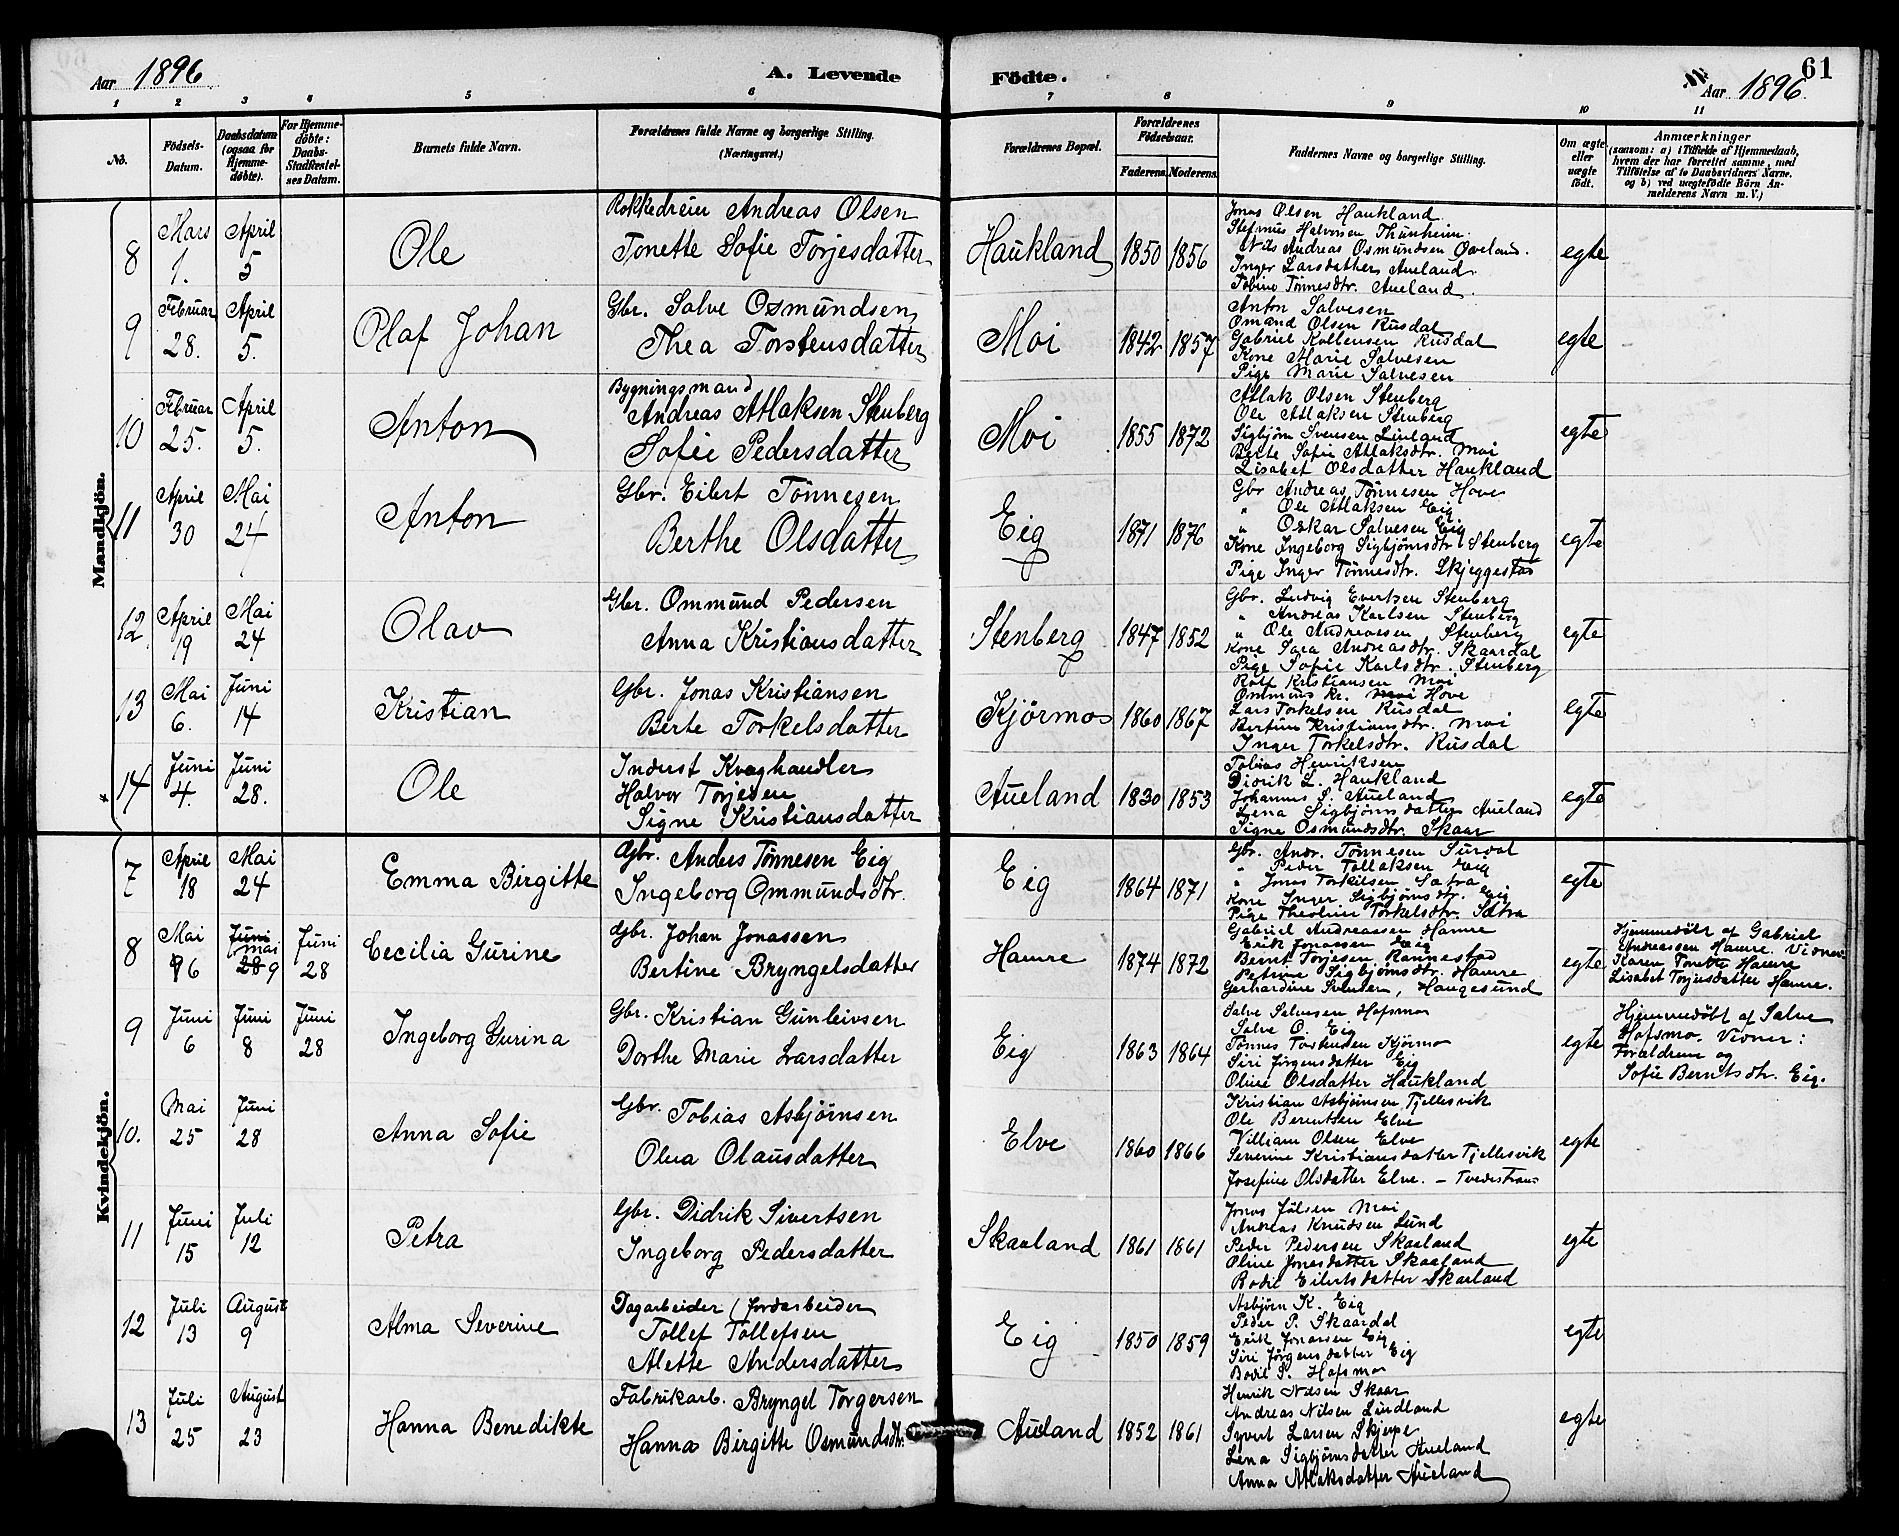 Aar 1896. A. Levende Födte. Aar 1896. 61
1 2 3 4 5 6 7 8 9 10 11
No.
Födsels-Datum.
Daabsdatum (ogsaa for Hjemme-döbte).
For Hjemme-döbte: Daabs-Stadfæstel-ses Datum.
Barnets fulde Navn.
Forældrenes fulde Navne og borgerlige Stilling. (Næringsvei.)
Forældrenes Bopæl.
Forældrenes Födselsaar.
Faderens. Moderens.
Faddernes Navne og borgerlige Stilling.
Om ægte eller uægte født.
Anmærkninger
(saasom: a) i Tilfælde af Hjemmedaab,
hvem der har forrettet samme, med
Tilföielse af to Daabsvidners Navne.
og b) ved uægtefödte Börn An-
melderens Navn m. V.)
Mandkjön.
8 Mars 1. April 5 Ole
Rokkedreier Andreas Olsen
Tonette Sofie Torjesdatter
Haukland 1850 1856
Jonas Olsen Haukland
Halvorsen Thunheim
Nils Andreas Osmundsen Øveland.
Inger Larsdatter Aueland
Tobine Tönnesdtr. Aueland
egte
9 Februar 28. April 5. Olaf Johan
Gbr. Salve Osmundsen
Thea Torstensdatter
Moi 1842 1857
Anton Salvesen
Omund Olsen Rusdal
Gabriel Kollensen Rusdal
Kone Marie Salvesen
Pige Marie Salvesen
egte
10 Februar 25. April 5. Anton
Bygningsmand
Andreas Atlaksen Stenberg
Sofie Pedersdatter
Moi 1855 1872
Atlak Olsen Stenberg
Ole Atlaksen Stenberg
Sigbjørn Svensen Lindland
Berte Sofie Atlaksdtr. Moi
Lisabet Olsdatter Haukland
egte
11 April 30 Mai 24 Anton
Gbr. Eilert Tönnesen
Berthe Olsdatter
Eig 1871 1876
Gbr Andreas Tönnesen Hove
" Ole Atlaksen Eig
" Oskar Salvesen Eig
Kone Ingeborg Sigbjörnsdtr. Stenberg
Pige Inger Tönnesdtr. Skjeggestad
egte
12 April 19 Mai 24 Olav
Gbr. Ommund Pedersen
Anna Kristiansdatter
Stenberg 1847 1852
Gbr. Ludvig Evertsen Stenberg
" Andreas Karlsen Stenberg
" Ole Andreassen Stenberg
Kone Sara Andreasdtr. Skaardal
Pige Sofie Karlsdtr. Stenberg
egte
13 Mai 6. Juni 14 Kristian
Gbr. Jonas Kristiansen
Berte Torkelsdatter
Kjörmo 1860 1867
Rolf Kristiansen Moi
Ommund Kr. Moi Hove
Lars Torkelsen Rusdal
Bertine Kristiansdtr. Moi
Inger Torkelsdtr. Rusdal
egte
14 Juni 4. Juni 28. Ole
Inderst Kvæghandler
Halvor Torjesen
Signe Kristiansdatter
Aueland 1830 1853
Tobias Henriksen
Didrik L. Haukland
Johannes S. Aueland
Lena Sigbjörnsdatter Aueland
Signe Osmundsdtr. Skaar
egte
Kvindekjön.
7 April 18 Mai 24 Emma Birgitte
Gbr. Anders Tönnesen Eig
Ingeborg Ommundsdtr.
Eig 1864 1871
Gbr. Andr. Tönnesen Surdal
" Peder Tollaksen Eig
" Jonas Torkilsen Sætra
Kone Inger Sigbjörnsdtr. Eig
Pige Theoline Torkelsdtr. Sætra
egte
8 Mai 6 Juni Mai 28 9 Juni 28 Cecilia Gurine
Gbr. Johan Jonassen
Bertine Bryngelsdatter
Hamre 1874 1872
Gabriel Andreassen Hamre
Erik Jonassen Eig
Bernt Torjesen Rannestad
Petrine Sigbjörnsdtr. Hamre
Gerhardine Svendsen, Haugesund
egte
Hjemmedöbt af Gabriel
Andreassen Hamre. Vidner
Karen Tonette Hamre
Lisabet Torjusdatter Hamre.
9 Juni 6 Juni 8 Juni 28 Ingeborg Gurina
Gbr. Kristian Gunleivsen
Dorthe Marie Larsdatter
Eig 1863 1864
Salve Salvesen Hofsmo
Salve O. Eig
Tönnes Tostensen Kjörmo
Siri Jörgensdatter Eig
Oline Olsdatter Haukland
egte
Hjemmedöbt af Salve
Hofsmo. Vidner:
Forældrene og
Sofie Berntsdtr. Eig.
10. Mai 25 Juni 28 Anna Sofie
Gbr. Tobias Asbjørnsen
Olea Olausdatter
Elve 1860 1866
Kristian Asbjörnsen Tjellesvik
Ole Berentsen Elve
William Olsen Elve
Severine Kristiansdatter Tjellesvik
Josefine Olsdatter Elve. - Tvedestrand
egte
11 Juni 15 Juli 12 Petra
Gbr. Didrik Sivertsen
Ingeborg Pedersdatter
Skaaland 1861 1861
Jonas Moi
Andreas Knudsen Lund
Peder Pedersen Skaaland
Oline Jonasdatter Skaaland
Bodil Eilertsdatter Skaaland
egte
12 Juli 13 August 9 Alma Severine
Dagarbeider (Jordarbeider
Tollef Tollefsen
Alette Andersdatter
Eig 1850 1859
Asbjørn K. Eig
Peder P. Skaardal
Erik Jonassen Eig
Siri Jörgensdatter Eig
Bodil S. Hofsmo
egte
13 Juli 25 August 23 Hanna Benedikte
Fabrikarb. Bryngel Torgersen
Hanna Birgitte Osmundsdtr.
Aueland 1852 1861
Henrik Nilsen Skaar
Andreas Nilsen Lindland
Syvert Larsen Skjerpe
Lena Sigbjörnsdatter Aueland
Anna Atlaksdatter Aueland
egte